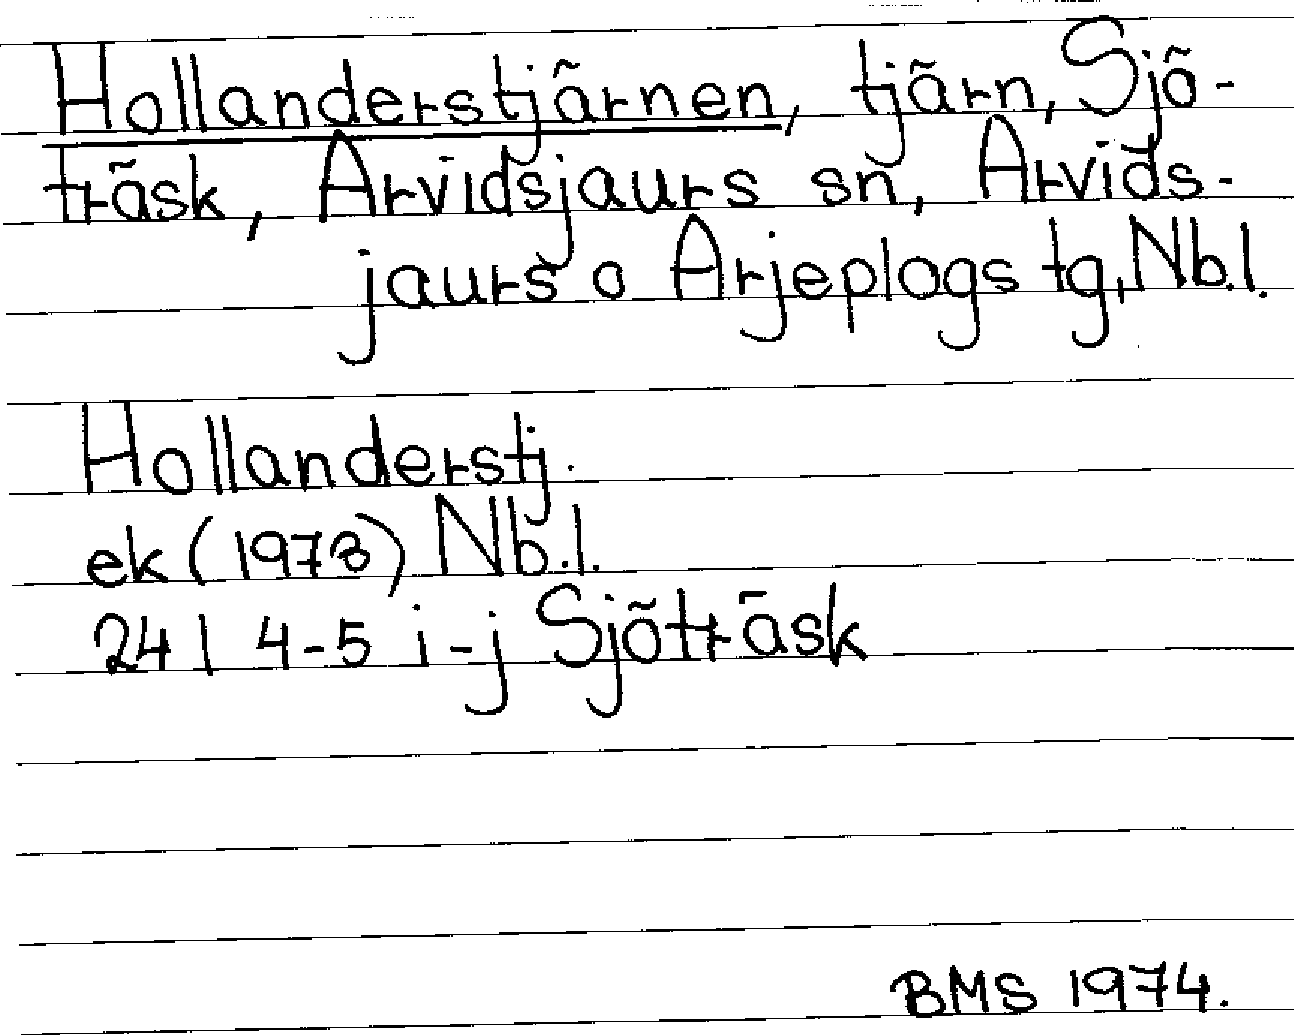 Hollanderstjärnen, tjärn, Sjö-
träsk, Arvidsjaurs sn, Arvids-
jaurs o Arjeplogs tg, Nb.l.
Hollanderstj.
ek (1973) Nb.l.
24 I 4-5 i-j Sjöträsk
BMS 1974.